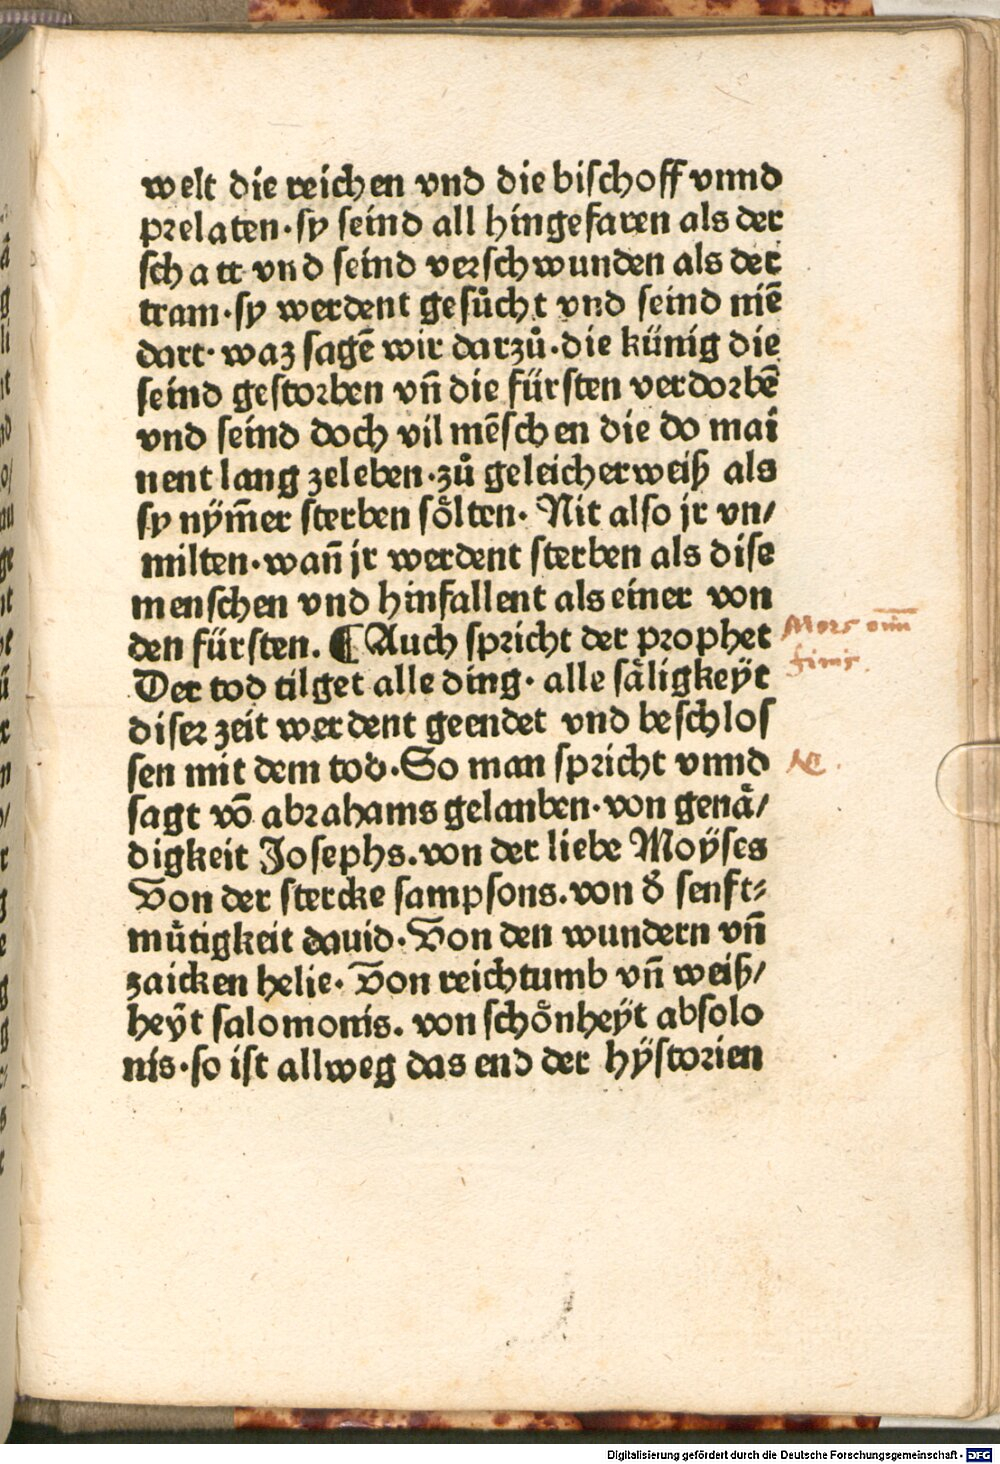 welt die reichen vnd die bischoff vnnd
prelaten·sy seind all hingefaren als der
schatt vnd seind verschwunden als der
tram·sy werdent gesůcht vnd seind niē
dart· waz sagē wir darzů·die künig die
seind gestorben vn̄ die fürsten verdorbē
vnd seind doch vil mēschen die do mai
nent lang zeleben·zů geleicherweiß als
sy nÿm̄er sterben soͤlten· Nit also jr vn/
milten·wan̄ jr werdent sterben als dise
menschen vnd hinfallent als einer von
den fürsten. ¶ Auch spricht der prophet
Der tod tilget alle ding· alle saͤligkeÿt
diser zeit werdent geendet vnd beschlos
sen mit dem tod·So man spricht vnnd
sagt vō abrahams gelauben·von genaͤ/
digkeit Josephs.von der liebe Moÿses
Von der stercke sampsons.von d̓ senft⸗
muͤtigkeit dauid·Von den wundern vn̄
zaicken helie· Von reichtumb vn̄ weiß/
heÿt salomonis. von schoͤnheÿt absolo
nis·so ist allweg das end der hÿstorien
Mors om̄
finis.
Digitalisierung gefördert durch die Deutsche Forschungsgemeinschaft - DFG